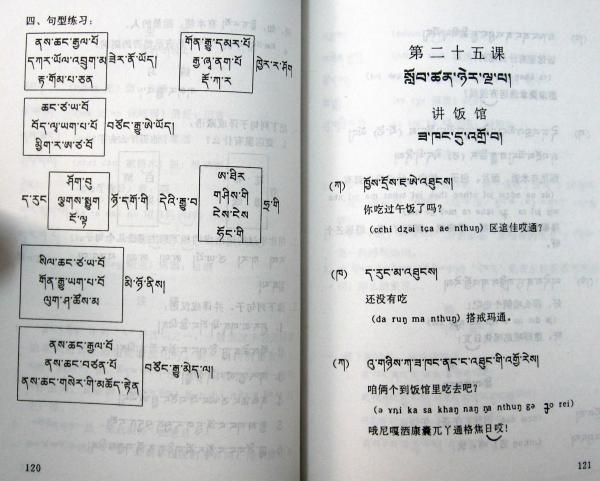 四、句型练习:
ནས་ཆང་རྒྱལ་པོ
དཀར་ཡོལ་འབྲུག་མ
རྟ་གོམ་པ་ཅན
ཟེར་ནོ་ཡོད།
གོན་རྒྱུ་དམར་པོ
རྒྱ་ཞྭ་ནག་པོ
རྡོ་ཀ་ར
ཁྱེར་ར་ཤོག
ཆང་ཙ་ཡ་བོ
བོད་ལྭ་ཡག་པ་པོ
མྱིག་ར་ཨ་ཙ་བོ
བཙོང་རྒྱུ་ཨེ་ཡོད།
ད་རུང
ཤོག་བུ
ལྕགས་སྨྱུག
ངོ་ལྟ
ཉོ་དགོ་གི
དེའི་རྒྱུ་བ
ཨ་ཐིར
གཤིས་གི
ངེས་ངེས
ཧོང་གི
ཧྲ་གི
སིལ་ཆང་ཙ་ཡ་བོ
གོན་རྒྱུ་ཡག་པ་བོ
ལུག་ཤ་ཚོས་མ
མི་ཉོ་ནིས།
ནས་ཆང་རྒྱལ་པོ
ནས་ཆང་བཙན་པོ
ནས་ཆང་གསེར་གི་མཆོད་རྟེན
བཙོང་རྒྱུ་མེད་ལ།
120
第二十五课
སློབ་ཚན་ཉེར་ལྔ་པ།
讲饭馆
ཟ་ཁང་དུ་འགྲོ་བ།
(ཀ) ཁྱོས་དྲོས་ཇ་ཨེ་འཐུངས།
你吃过午饭了吗?
(cchi dʐəi tɕa ae nthuŋ) 区追佳哎通?
(ཁ) ད་རུང་མ་འཐུངས།
还没有吃
(da ruŋ ma nthuŋ) 搭戎玛通。
(ཀ) འུ་གཉིས་ཀ་ཟ་ཁང་ནང་ང་འཐུང་གི་འགྲོ་རེས།
咱俩个到饭馆里吃去吧?
(ə vni ka sa khaŋ naŋ ŋa nthuŋ gə ɟo rei)
哦尼嘎洒康囊兀丫通格焦日哎!
121